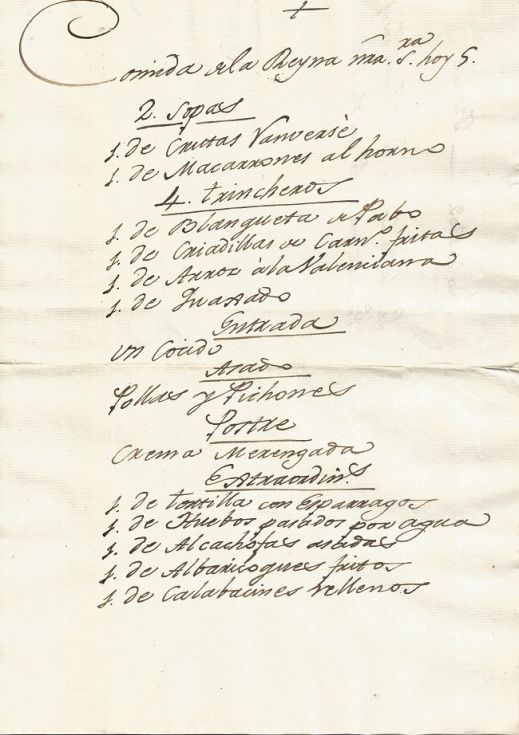 Comida de la Reyna nra. sra. hoy 5.
2. Sopas
1. de Crutas Vanversè
1. de Macarrones al horno
4. trincheros
1. de Blanqueta de Pabo
1. de Criadillas de Carno. fritas
1. de Arroz à la Valenciana
1. de
Entrada
un Cocido
Asado
Pollas y Pichones
Postre
Crema Merengada
Extraordins.
1. de tortilla con Esparragos
1. de Huebos pasados por agua
1. de Alcachofas asadas
1. de Albaricoques fritos
1. de Calabacines rellenos